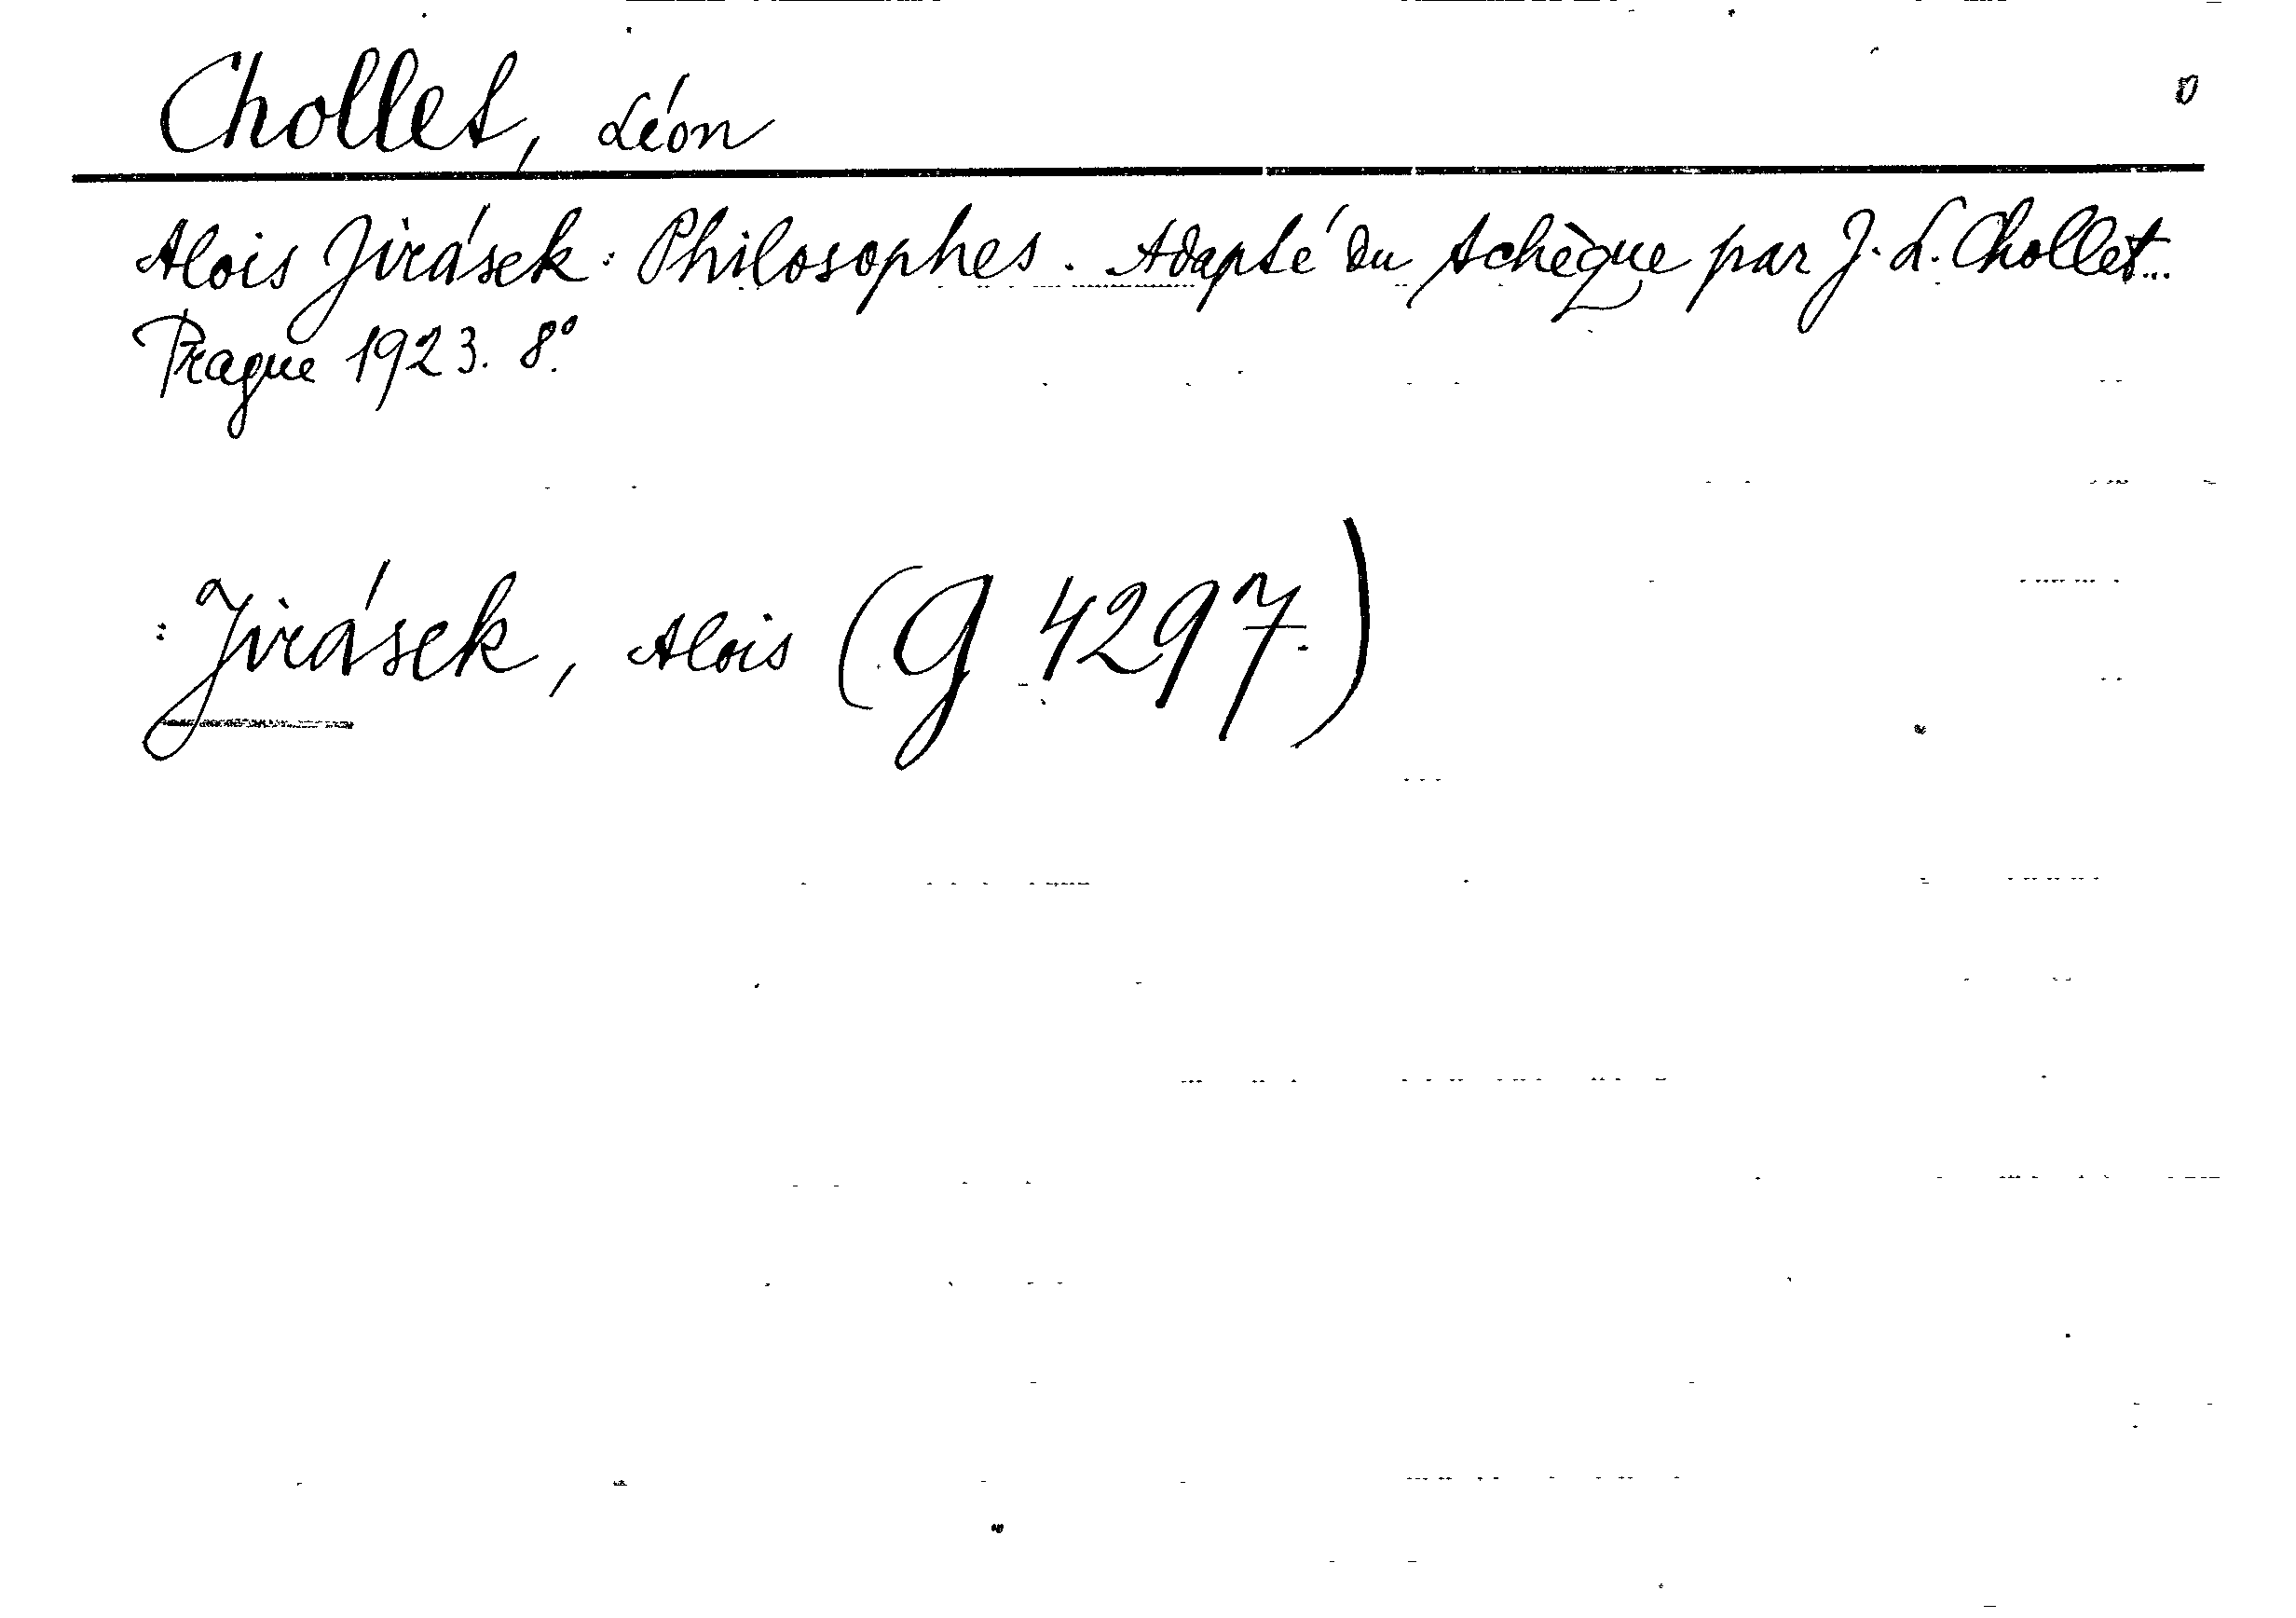 Chollet, Léon
Alois Jirásek: Philosophes. Adapté du tchèque par J. L. Chollet...
Prague 1923. 8°.
: Jirásek, Alois (G 4297.)